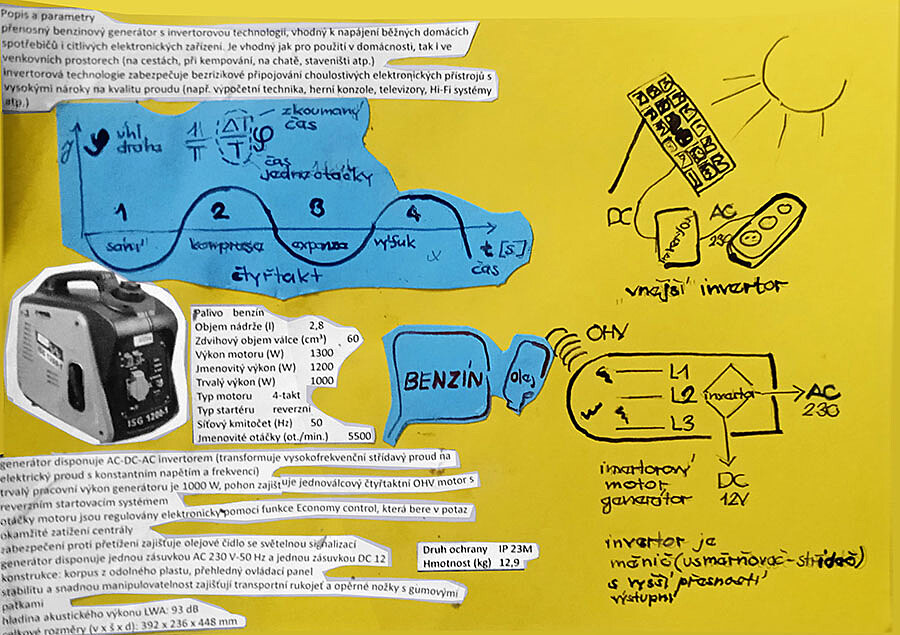 Popis a parametry
přenosný benzinový generátor s invertorovou technologií, vhodný k napájení běžných domácích
spotřebičů i citlivých elektronických zařízení. Je vhodný jak pro použití v domácnosti, tak i ve
venkovních prostorech (na cestách, při kempování, na chatě, staveništi atp.)
invertorová technologie zabezpečuje bezrizikové připojování choulostivých elektronických přístrojů s
vysokými nároky na kvalitu proudu (např. výpočetní technika, herní konzole, televizory, Hi-Fi systémy
atp.)
φ úhl
dráha
ΔT
T
φ
zkoumaný
čas
čas
jedné otáčky
1 2 3 4
sání komprese expanze výfuk
t [s]
čas
čtyřtakt
DC AC
230
invertor
vnější invertor
ISG 1200-1
Palivo benzín
Objem nádrže (l) 2,8
Zdvihový objem válce (cm³) 60
Výkon motoru (W) 1300
Jmenovitý výkon (W) 1200
Trvalý výkon (W) 1000
Typ motoru 4-takt
Typ startéru reverzní
Síťový kmitočet (Hz) 50
Jmenovité otáčky (ot./min.) 5500
BENZÍN
olej
OHV
L1
L2
L3
invertor
AC
230
DC
12V
invertorový
motor
generátor
generátor disponuje AC-DC-AC invertorem (transformuje vysokofrekvenční střídavý proud na
elektrický proud s konstantním napětím a frekvencí)
trvalý pracovní výkon generátoru je 1000 W, pohon zajišťuje jednoválcový čtyřtaktní OHV motor s
reverzním startovacím systémem
otáčky motoru jsou regulovány elektronicky pomocí funkce Economy control, která bere v potaz
okamžité zatížení centrály
zabezpečení proti přetížení zajišťuje olejové čidlo se světelnou signalizací
generátor disponuje jednou zásuvkou AC 230 V-50 Hz a jednou zásuvkou DC 12
konstrukce: korpus z odolného plastu, přehledný ovládací panel
stabilitu a snadnou manipulovatelnost zajišťují transportní rukojeť a opěrné nožky s gumovými
patkami
hladina akustického výkonu LWA: 93 dB
celkové rozměry (v x š x d): 392 x 236 x 448 mm
Druh ochrany IP 23M
Hmotnost (kg) 12,9
invertor je
měnič (usměrňovač-střídač)
s vyšší přesností
výstupní